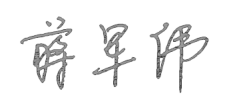 蒋军伟